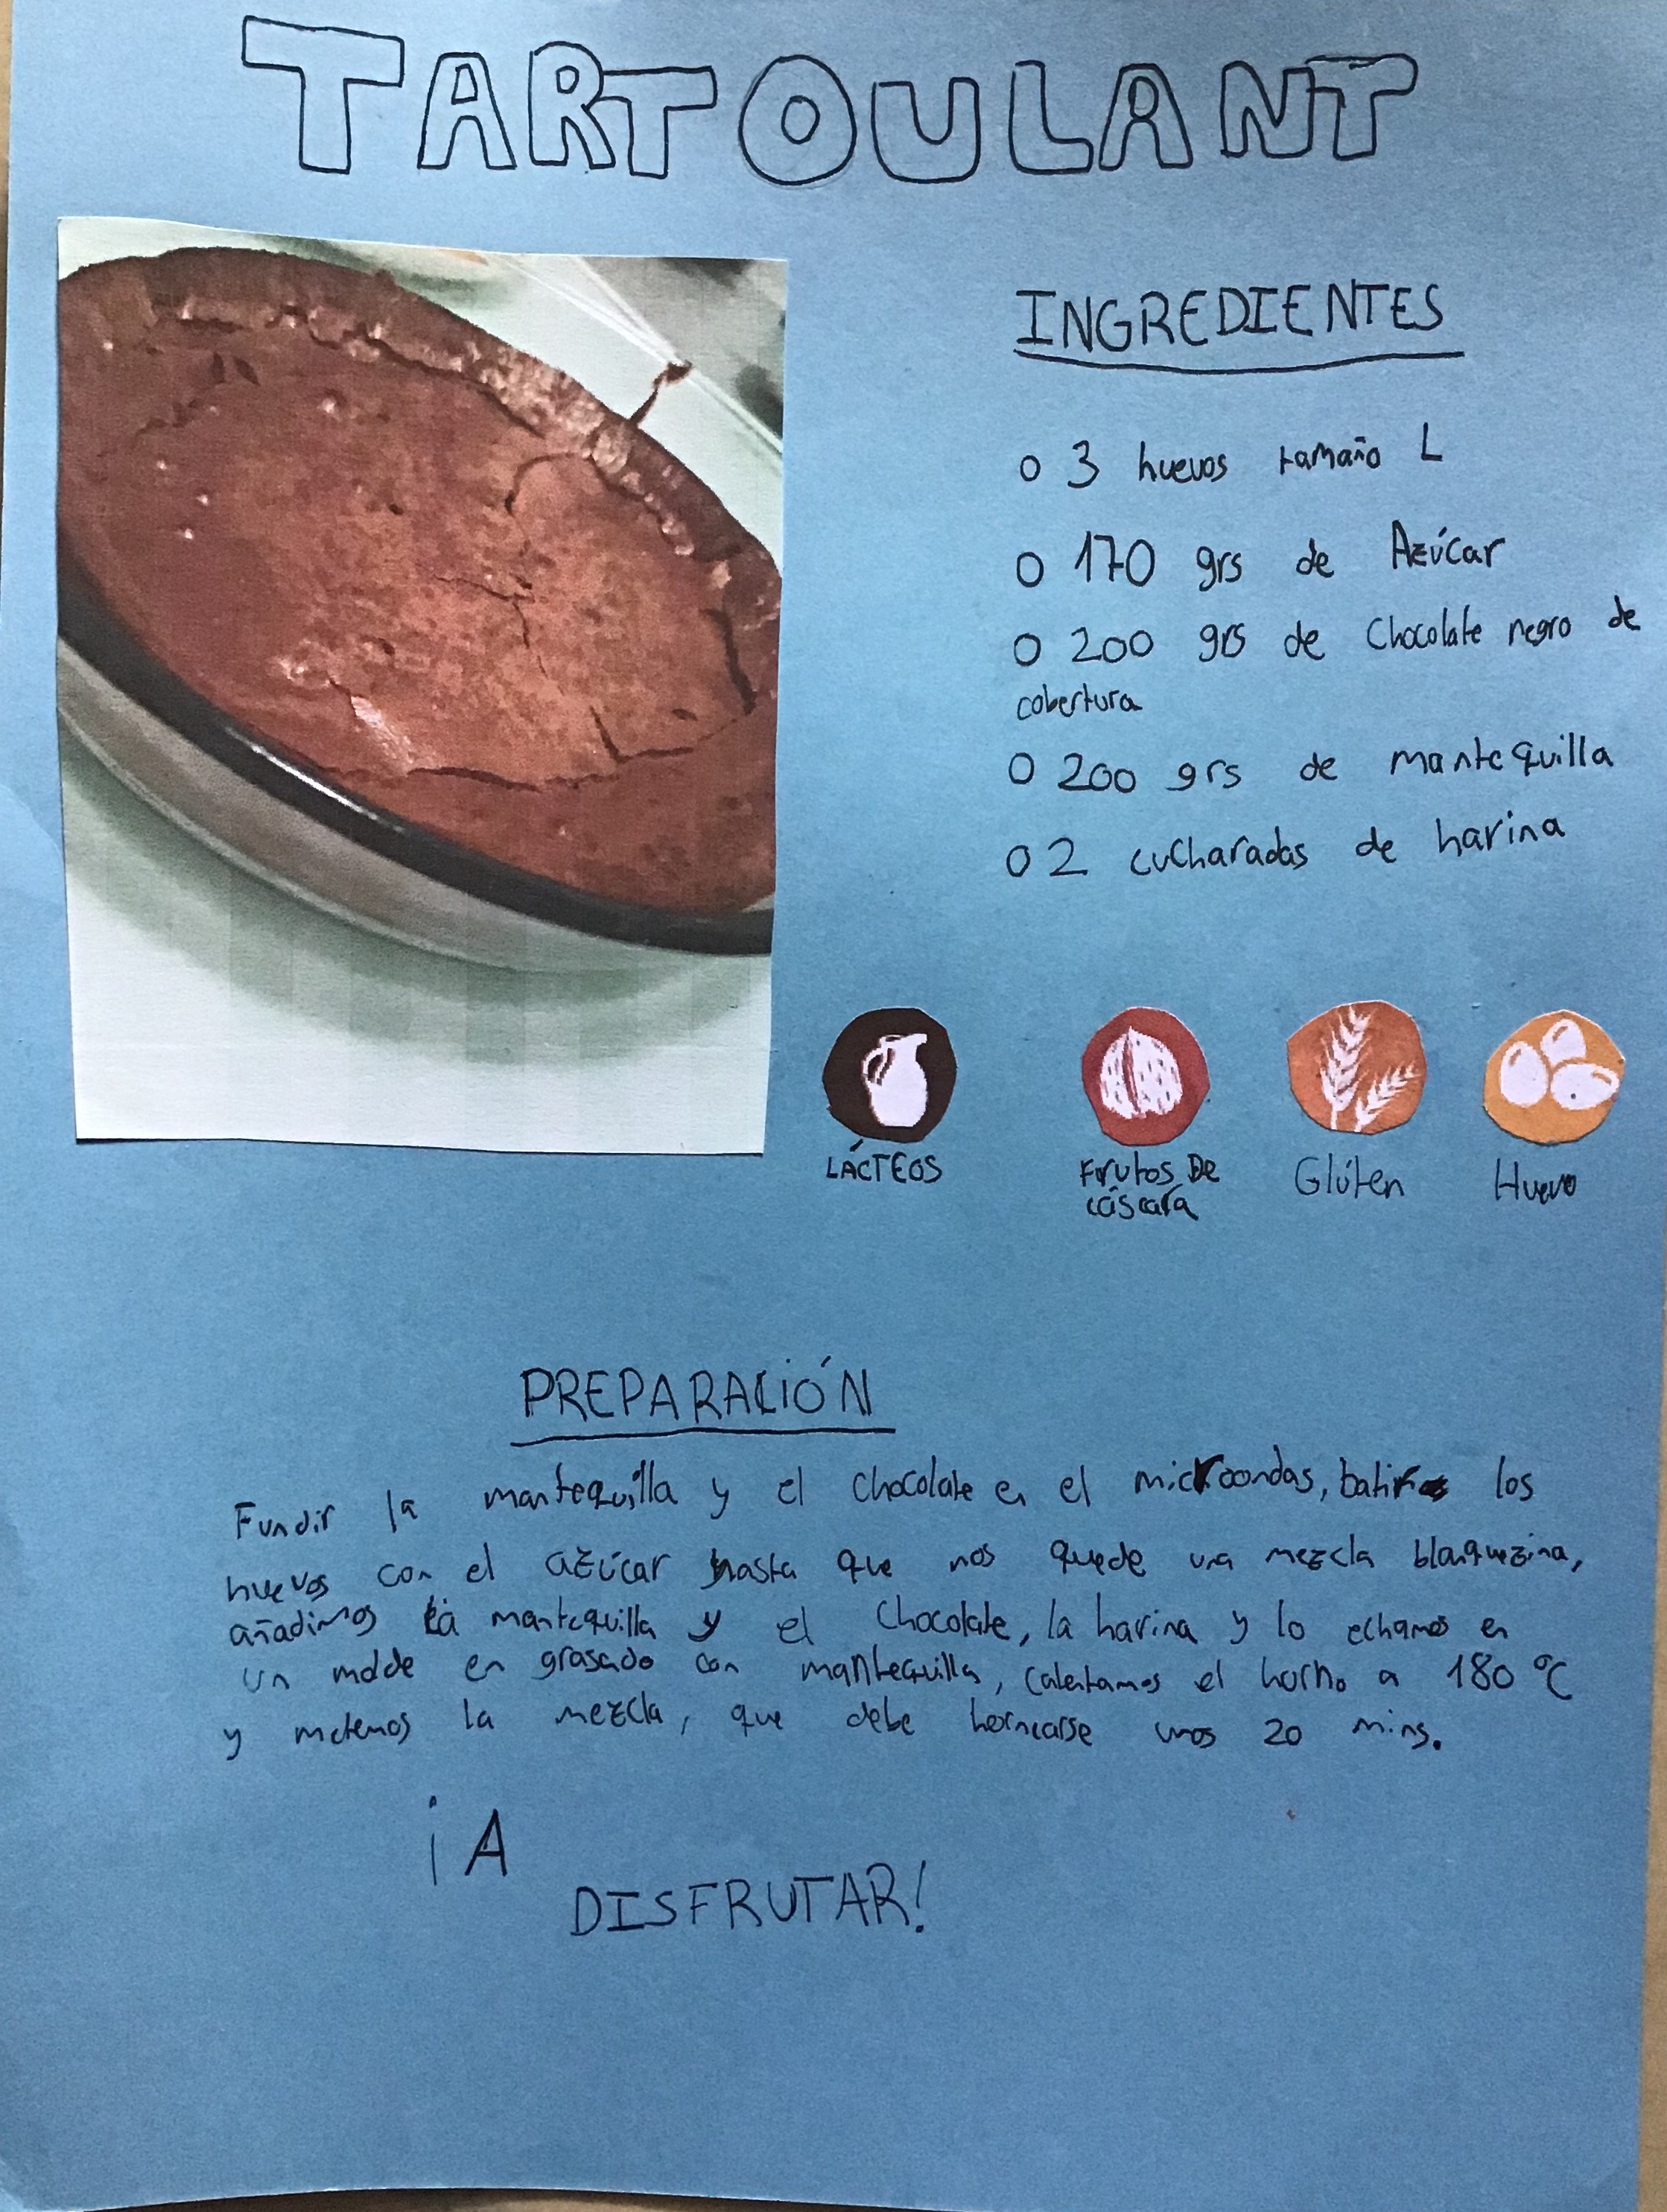 TARTOULANT
INGREDIENTES
O 3 huevos tamaño L
O 170 grs de Azúcar
O 200 grs de Chocolate negro de
cobertura
O 200 grs de mantequilla
O 2 cucharadas de harina
LÁCTEOS
Frutos De
cáscara
Glúten
Huevo
PREPARACIÓN
Fundir la mantequilla y el chocolate en el microondas, batir los
huevos con el azúcar hasta que nos quede una mezcla blanquezina,
añadimos la mantequilla y el chocolate, la harina y lo echamos en
un molde en grasado con mantequilla, calentamos el horno a 180 °C
y metemos la mezcla, que debe hornearse unos 20 mins.
¡A
DISFRUTAR!